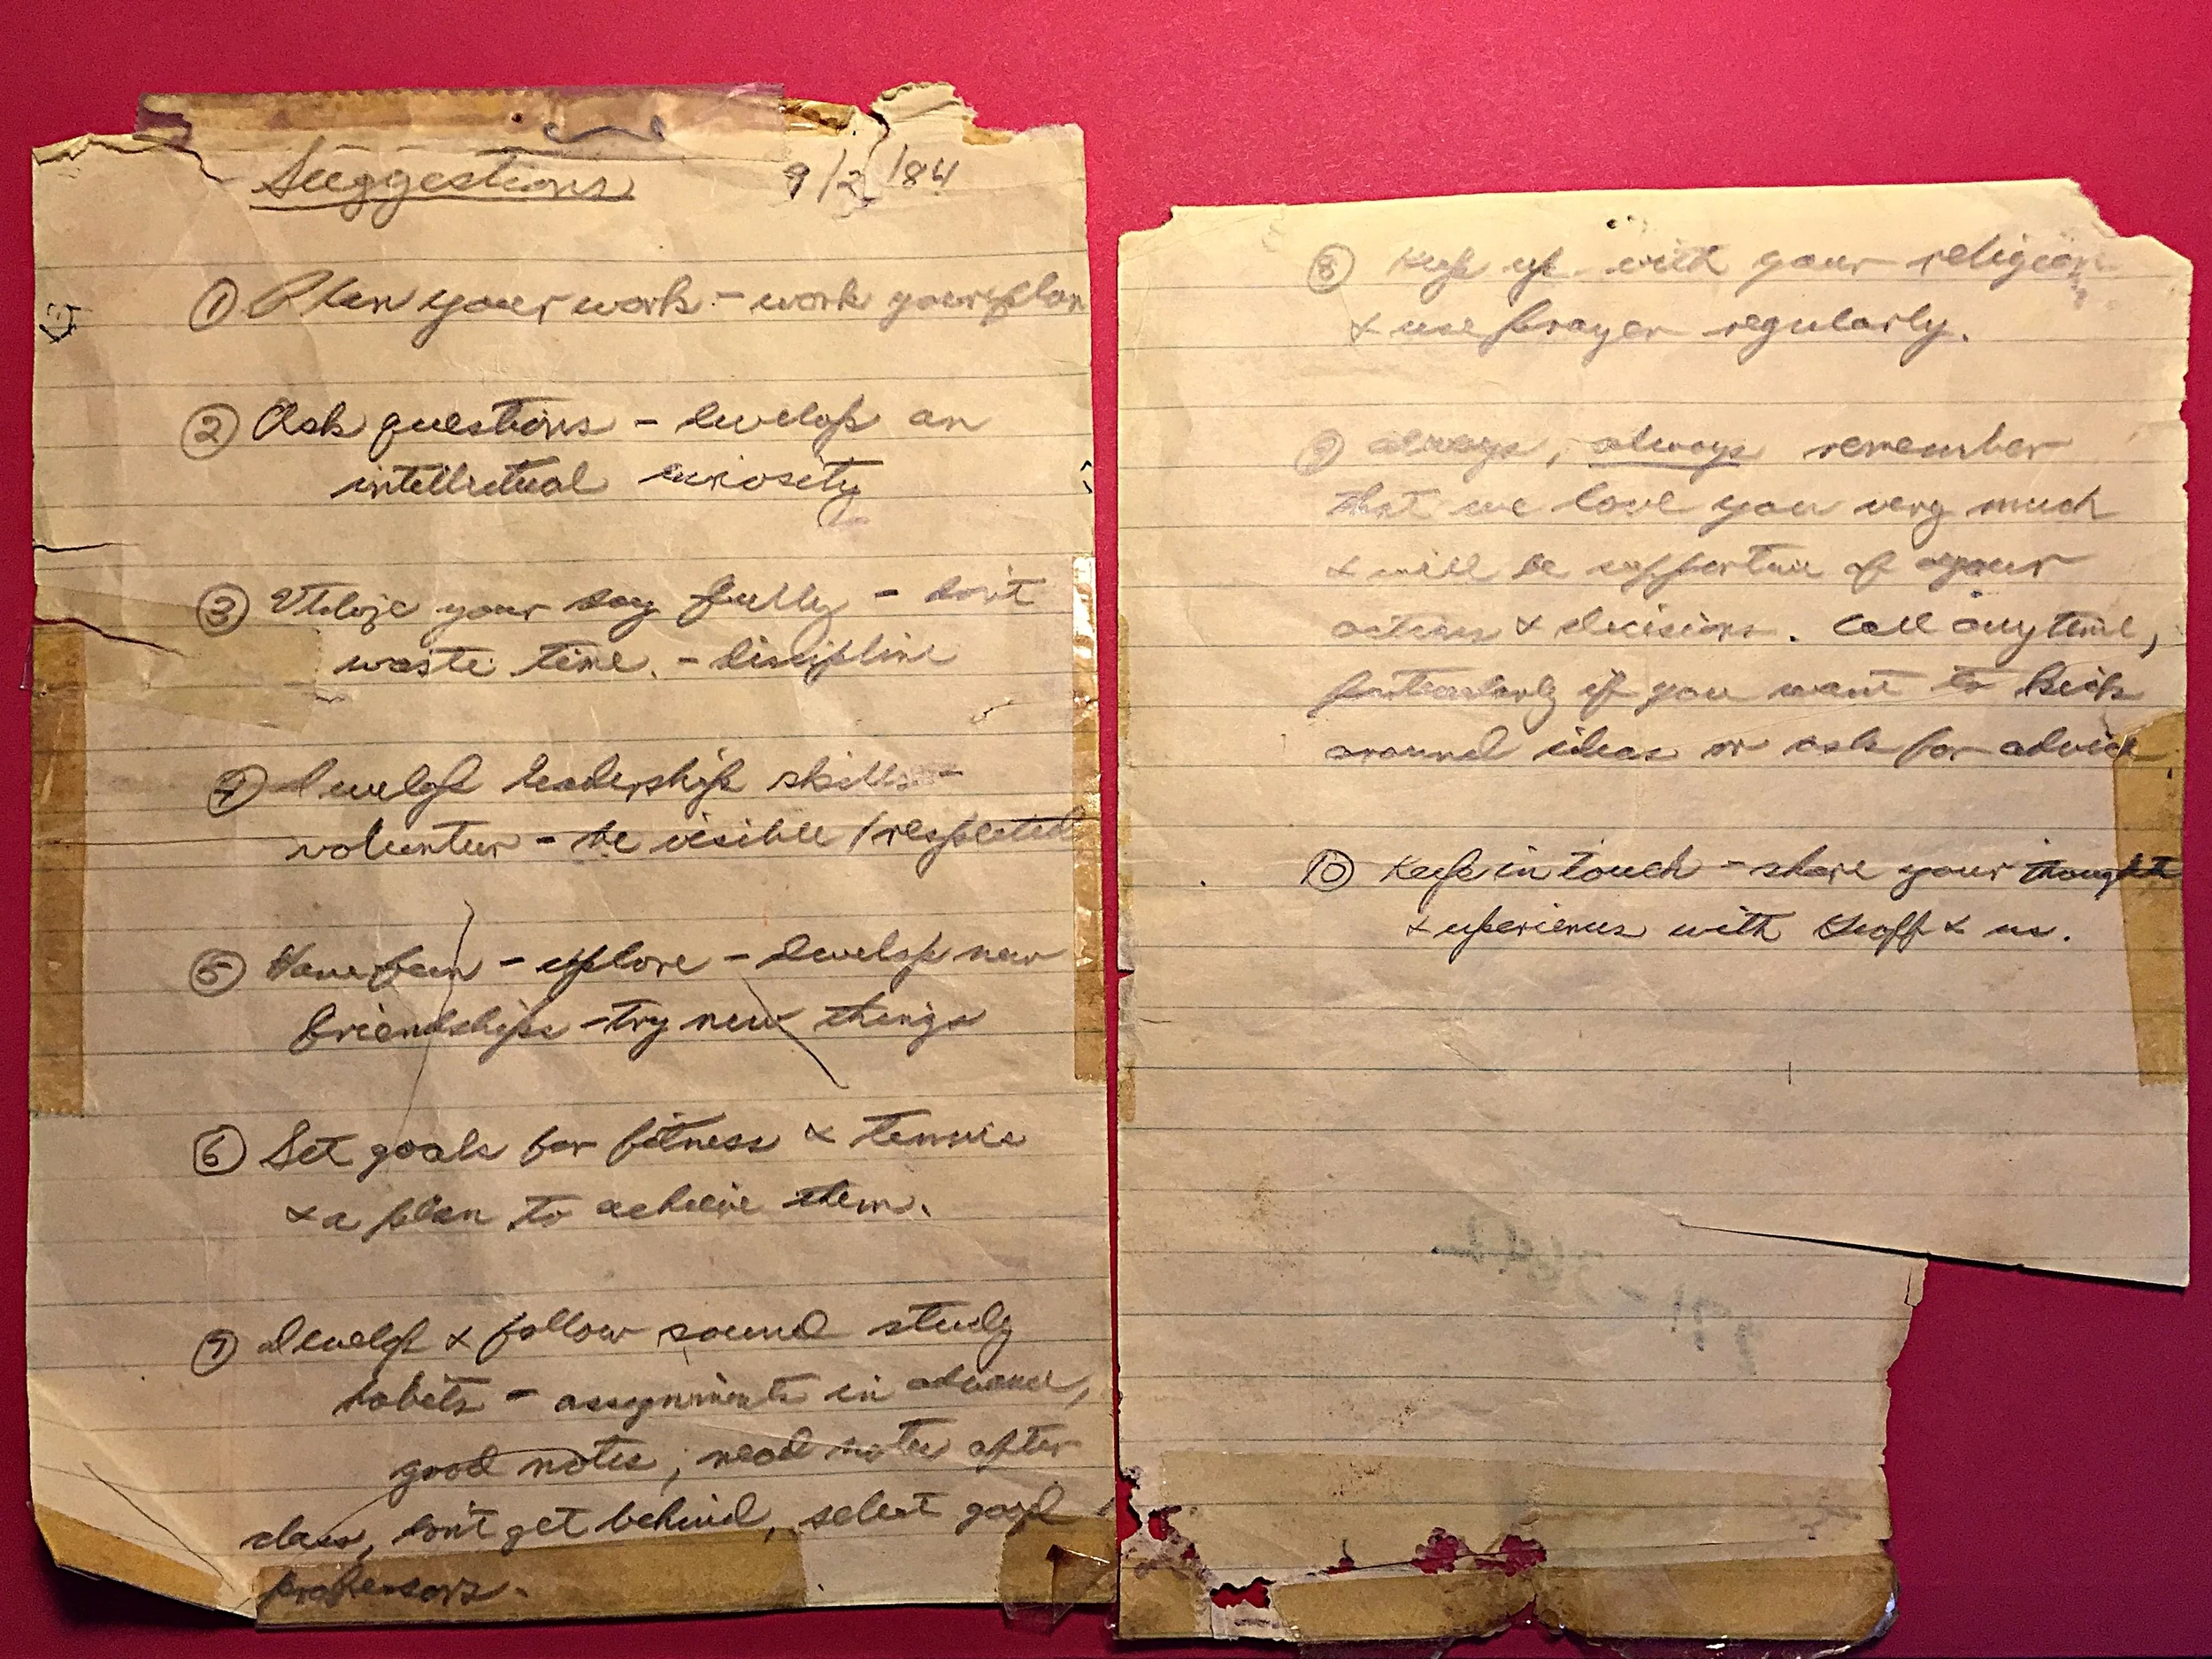 Suggestions 9/2/84
① Plan your work - work your plan
② Ask questions - develop an
intellectual curiosity
③ Utilize your day fully - don't
waste time. - discipline
④ Develop leadership skills -
volunteer - be visible / respected
⑤ Have fun - explore - develop new
friendships - try new things
⑥ Set goals for fitness & tennis
& a plan to achieve them.
⑦ Develop & follow sound study
habits - assignments in advance,
good notes, read notes after
class, don't get behind, select good
professors.
⑧ Keep up with your religion
& use prayer regularly.
⑨ always, always remember
that we love you very much
& will be supportive of your
actions & decisions. Call anytime,
particularly if you want to kick
around ideas or ask for advice.
⑩ Keep in touch - share your thoughts
& experiences with Geoff & us.